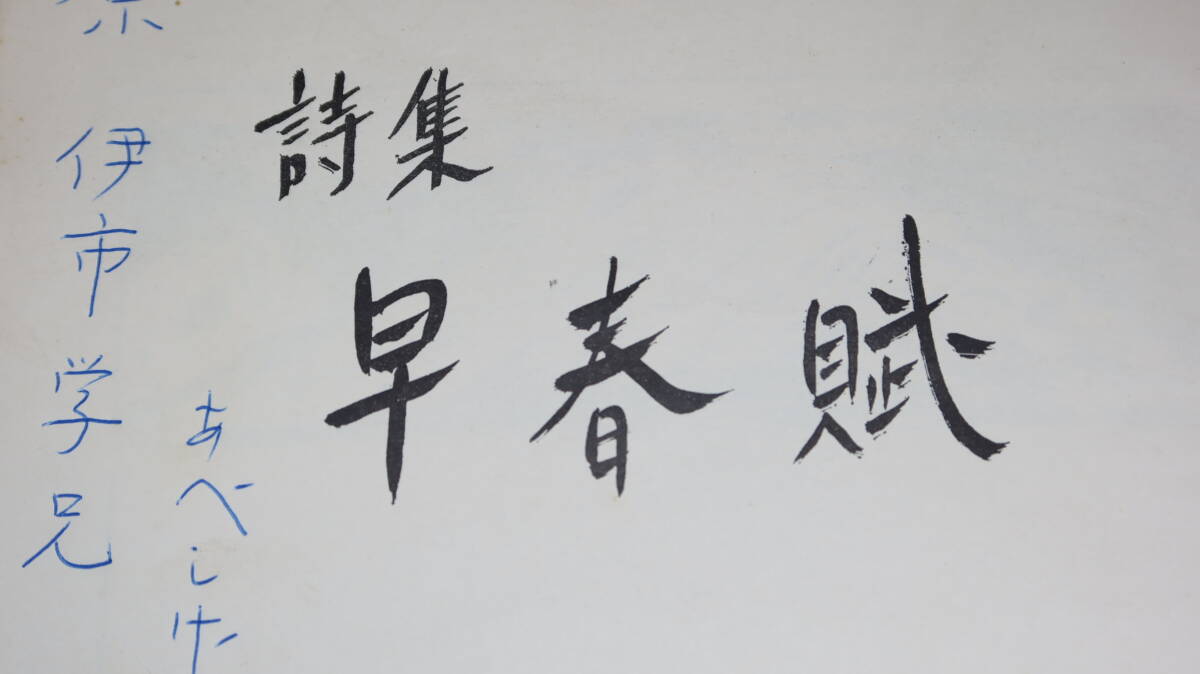 詩集
早春賦
伊市学兄
あべしげ